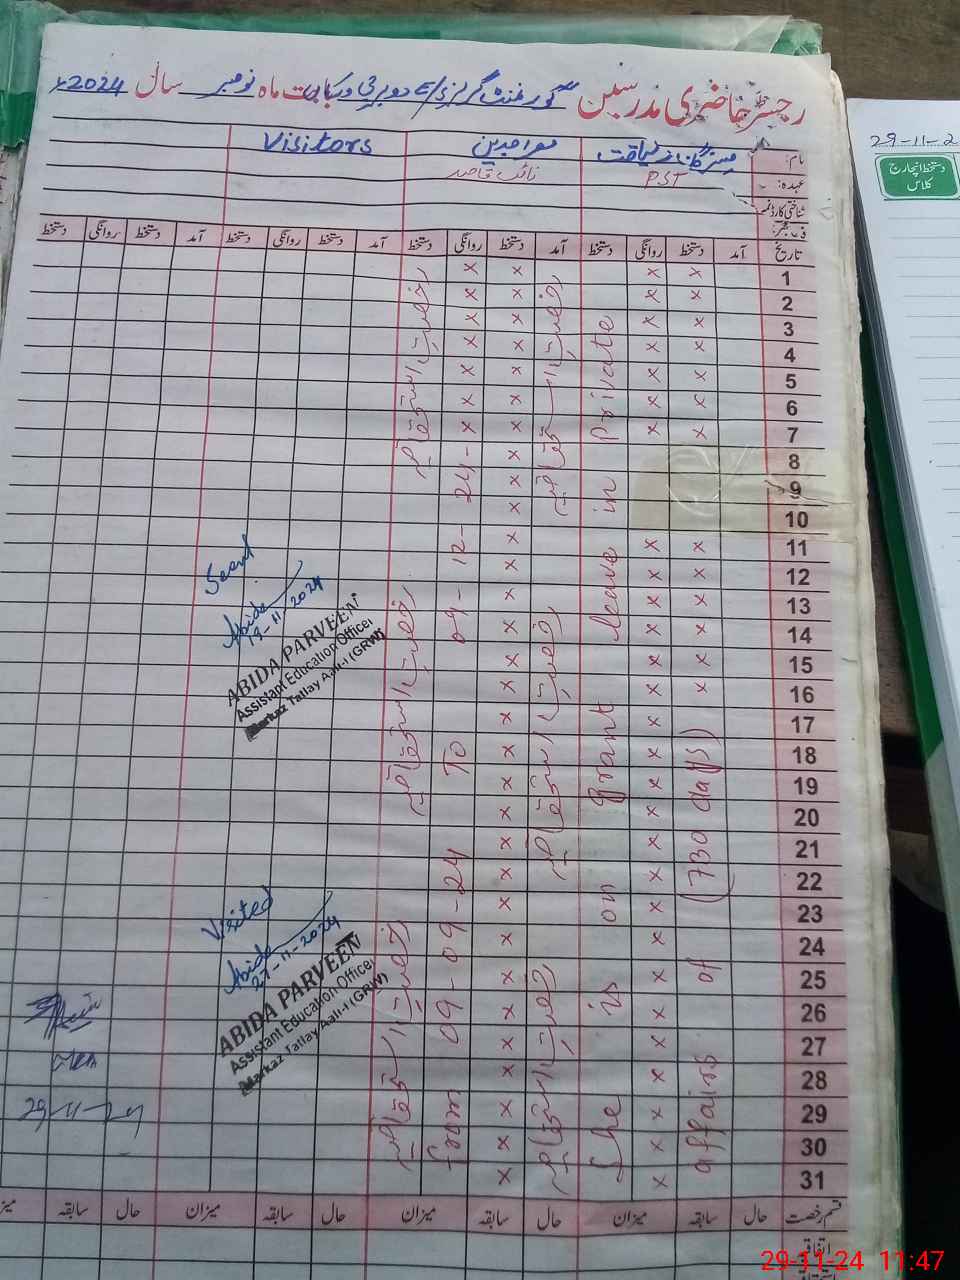 رجسٹر حاضری مدرسین گورنمنٹ گرلز بابت ماہ نومبر سال 2024ء
29-11-2
دستخط انچارج
کلاس
نام: مسز لیاقت معراجدین Visitors
عہدہ: PST نائب قاصد
شناختی کارڈ نمبر
تاریخ آمد دستخط روانگی دستخط آمد دستخط روانگی دستخط آمد دستخط روانگی دستخط آمد دستخط روانگی دستخط
1
2
3
4
5
6
7
8
9
10
11
12
13
14
15
16
17
18
19
20
21
22
23
24
25
26
27
28
29
30
31
She is on grant leave in private
affairs of (730 days)
رخصت استحقاقیہ
رخصت استحقاقیہ
رخصت استحقاقیہ
from 09-09-24 To 07-12-24-
رخصت استحقاقیہ
رخصت استحقاقیہ
رخصت استحقاقیہ
Abida
19-11-2024
ABIDA PARVEEN
Assistant Education Officer,
Markaz Tatlay Aali-I (GRW)
Visited
Abida
27-11-2024
ABIDA PARVEEN
Assistant Education Officer,
Markaz Tatlay Aali-I (GRW)
29-11-24
قسم رخصت حال سابقہ میزان حال سابقہ میزان حال سابقہ میزان حال سابقہ میز
اتفاقیہ
29-11-24 11:47